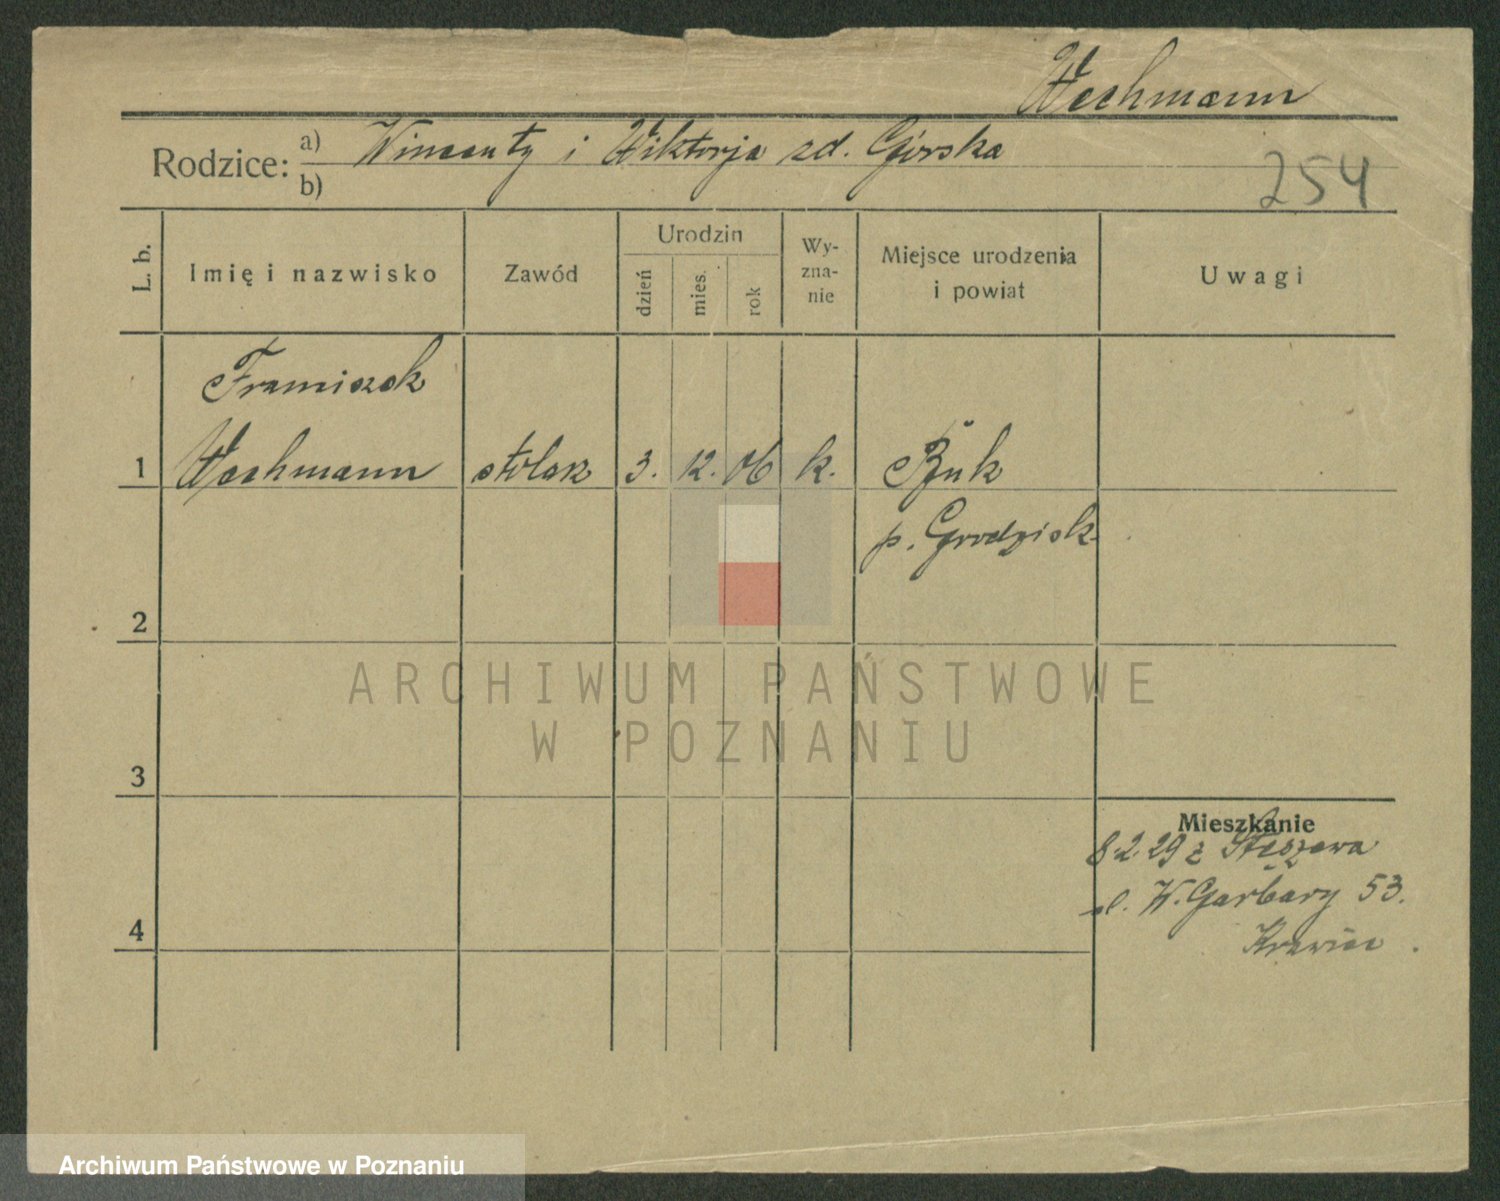 Wechmann
Rodzice: a) Wincenty i Wiktorja zd. Górska
b)
254
L. b. Imię i nazwisko Zawód Urodzin dzień mies. rok Wy-zna-nie Miejsce urodzenia i powiat Uwagi
Franciszek
1 Wechmann stolarz 3. 12. 06 k. Buk
p. Grodzisk
2
ARCHIWUM PAŃSTWOWE
W POZNANIU
3
Mieszkanie
8.2.29 z Stęszewa
ul. W. Garbary 53.
4
Archiwum Państwowe w Poznaniu